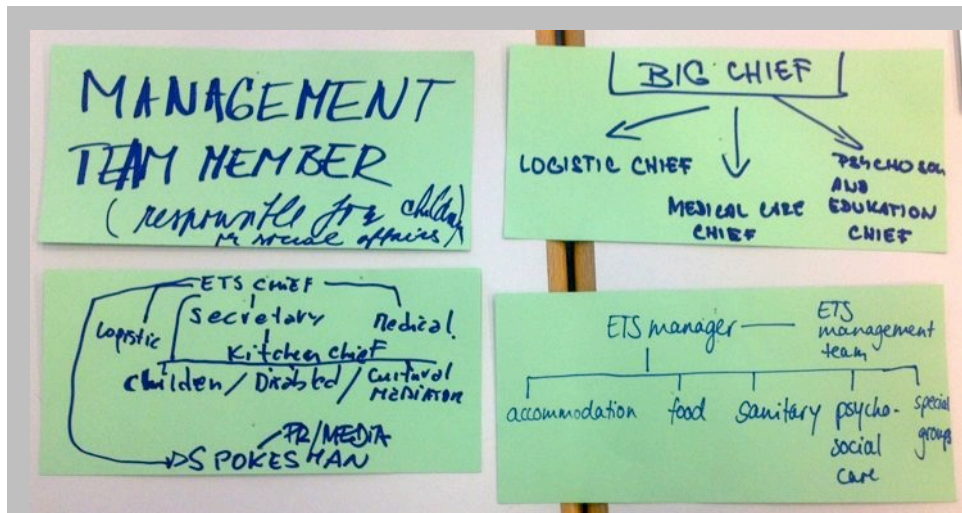 MANAGEMENT
TEAM MEMBER
(responsible for children
or social affairs)
BIG CHIEF
LOGISTIC CHIEF
MEDICAL CARE
CHIEF
PSYCHOSOC
AND
EDUKATION
CHIEF
ETS CHIEF
Logistic
Secretary
Medical
Kitchen CHIEF
Children / Disabled / Cultural
MEDIATOR
PR/MEDIA
SPOKESMAN
ETS manager
ETS
management
team
accommodation
food
sanitary
psycho-
social
care
special
groups